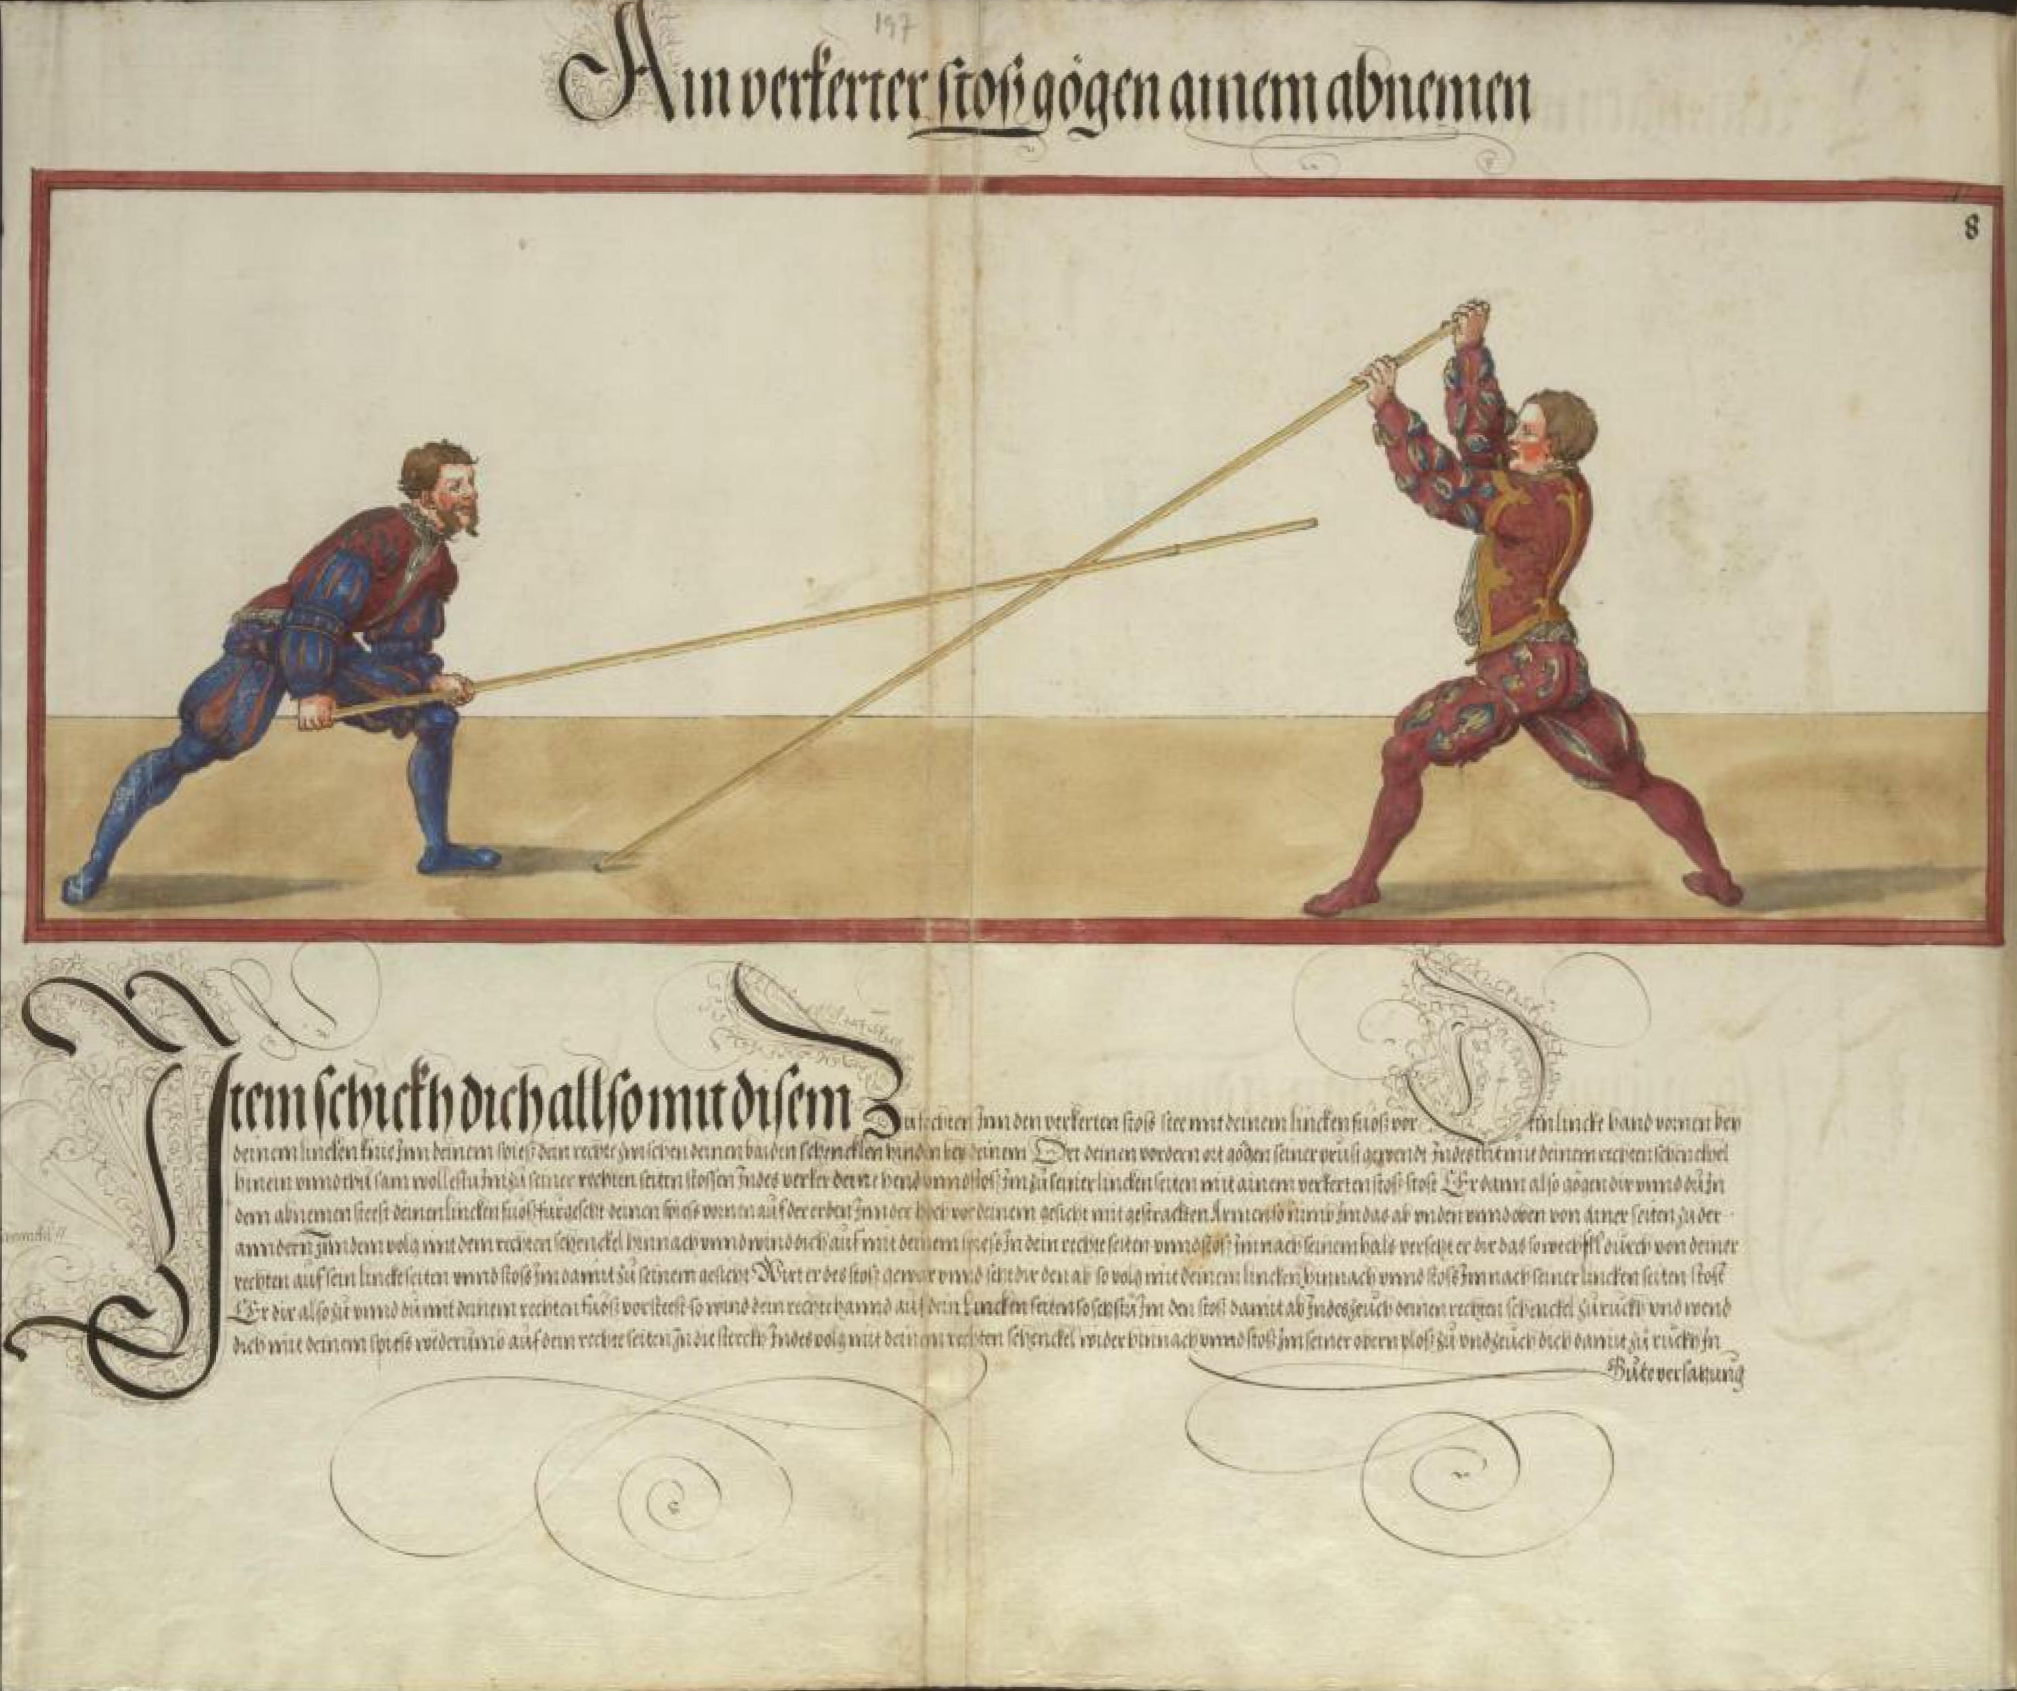 197
Ain verkerter stoß gögen ainem abnemen
8
Item schickh dich allso mit disem Zufechten Inn den verkerten stoß stee mit deinem lincken fuoß vor Dein lincke hand vornen bey
deinem lincken knie Inn deinem spieß dein rechte zwischen deinen baiden schencklen hinden bey deinem Ort deinen vordern ort gögen seiner prust gewendt Indes trit mit deinem rechten schenckel
hinein vnnd thu sam wollestu Im zu seiner rechten seiten stossen Indes verker deine hend vnnd stoß Im zu seiner lincken seiten mit ainem verkerten stoß stost Er dann also gögen dir vnnd du In
dem abnemen steest deinen lincken fuoß fürgesetzt deinen spiess vornen auf der erden Inn der hoch vor deinem gesicht mit gestrackten Armen so nimb Im das ab vnden vnnd oben von ainer seiten zu der
anndern Inn dem volg mit dem rechten schenckel hinnach vnnd wind dich auf mit deinem spiess In dein rechte seiten vnnd stoß Im nach seinem hals versetzt er dir das so wechsll durch von deiner
rechten auf sein lincke seiten vnnd stoß Im damit zu seinem gesicht Wirt er des stoß gewar vnnd setzt dir den ab so volg mit deinem lincken hinnach vnnd stoss Im nach seiner lincken seiten stost
Er dir also zu vnnd du mit deinem rechten fuoß vorsteest so wind dein rechte hannd auf dein Lincken seiten so setzstu Im den stoß damit ab Indes zeuch deinen rechten schenckel zu ruckh vnd wend
dich mit deinem spiess widerumb auf dein rechte seiten In die sterckh Indes volg mit deinem rechten schenckel wider hinnach vnnd stoß Im seiner obern plöß zu vnd zeuch dich damit zu ruckh In
Gute versatzung